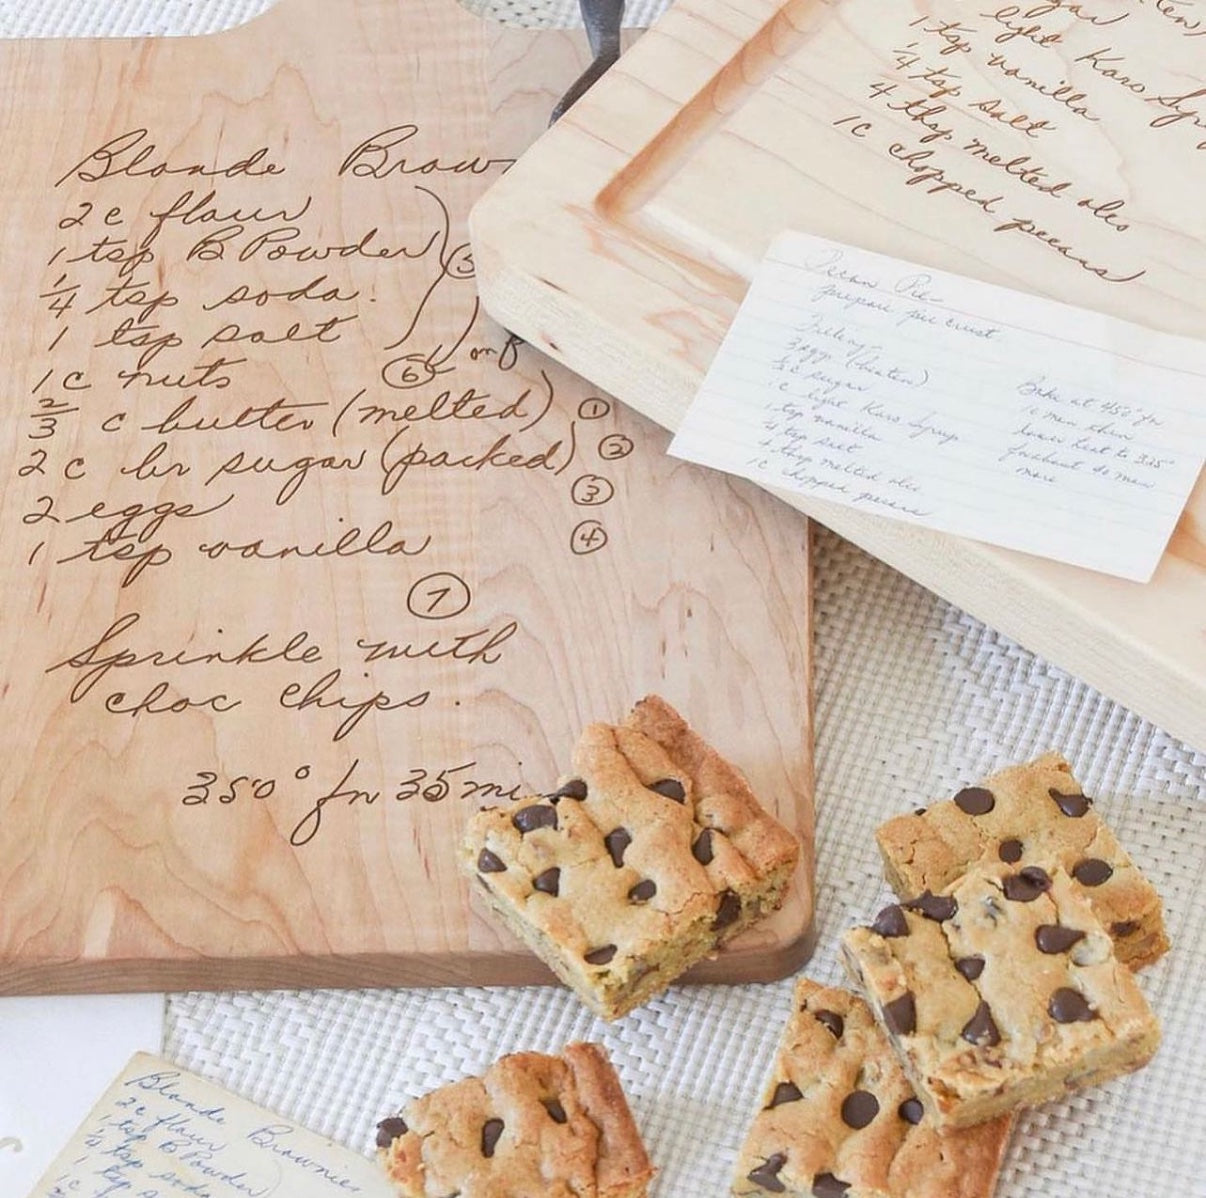 Blonde Brow
2 c flour
1 tsp B Powder
1/4 tsp soda.
1 tsp salt
5
1 c nuts
6
2/3 c butter (melted) 1
2 c br sugar (packed) 2
2 eggs 3
1 tsp vanilla 4
7
Sprinkle with
choc chips.
350° fr 35 mi
sugar
light Karo Syru
1 tsp vanilla
1/4 tsp salt
4 tbsp melted oleo
1c chopped pecans
Pecan Pie
prepare pie crust
Filling
3 eggs (beaten)
c sugar
1c light Karo Syrup
1 tsp vanilla
1/4 tsp salt
4 tbsp melted oleo
1c chopped pecans
Bake at 450° for
10 min then
lower heat to 325°
for about 40 min
more
Blonde Brownies
2c flour
1 tsp B Powder)
1/4 tsp soda
1 tsp s
1c